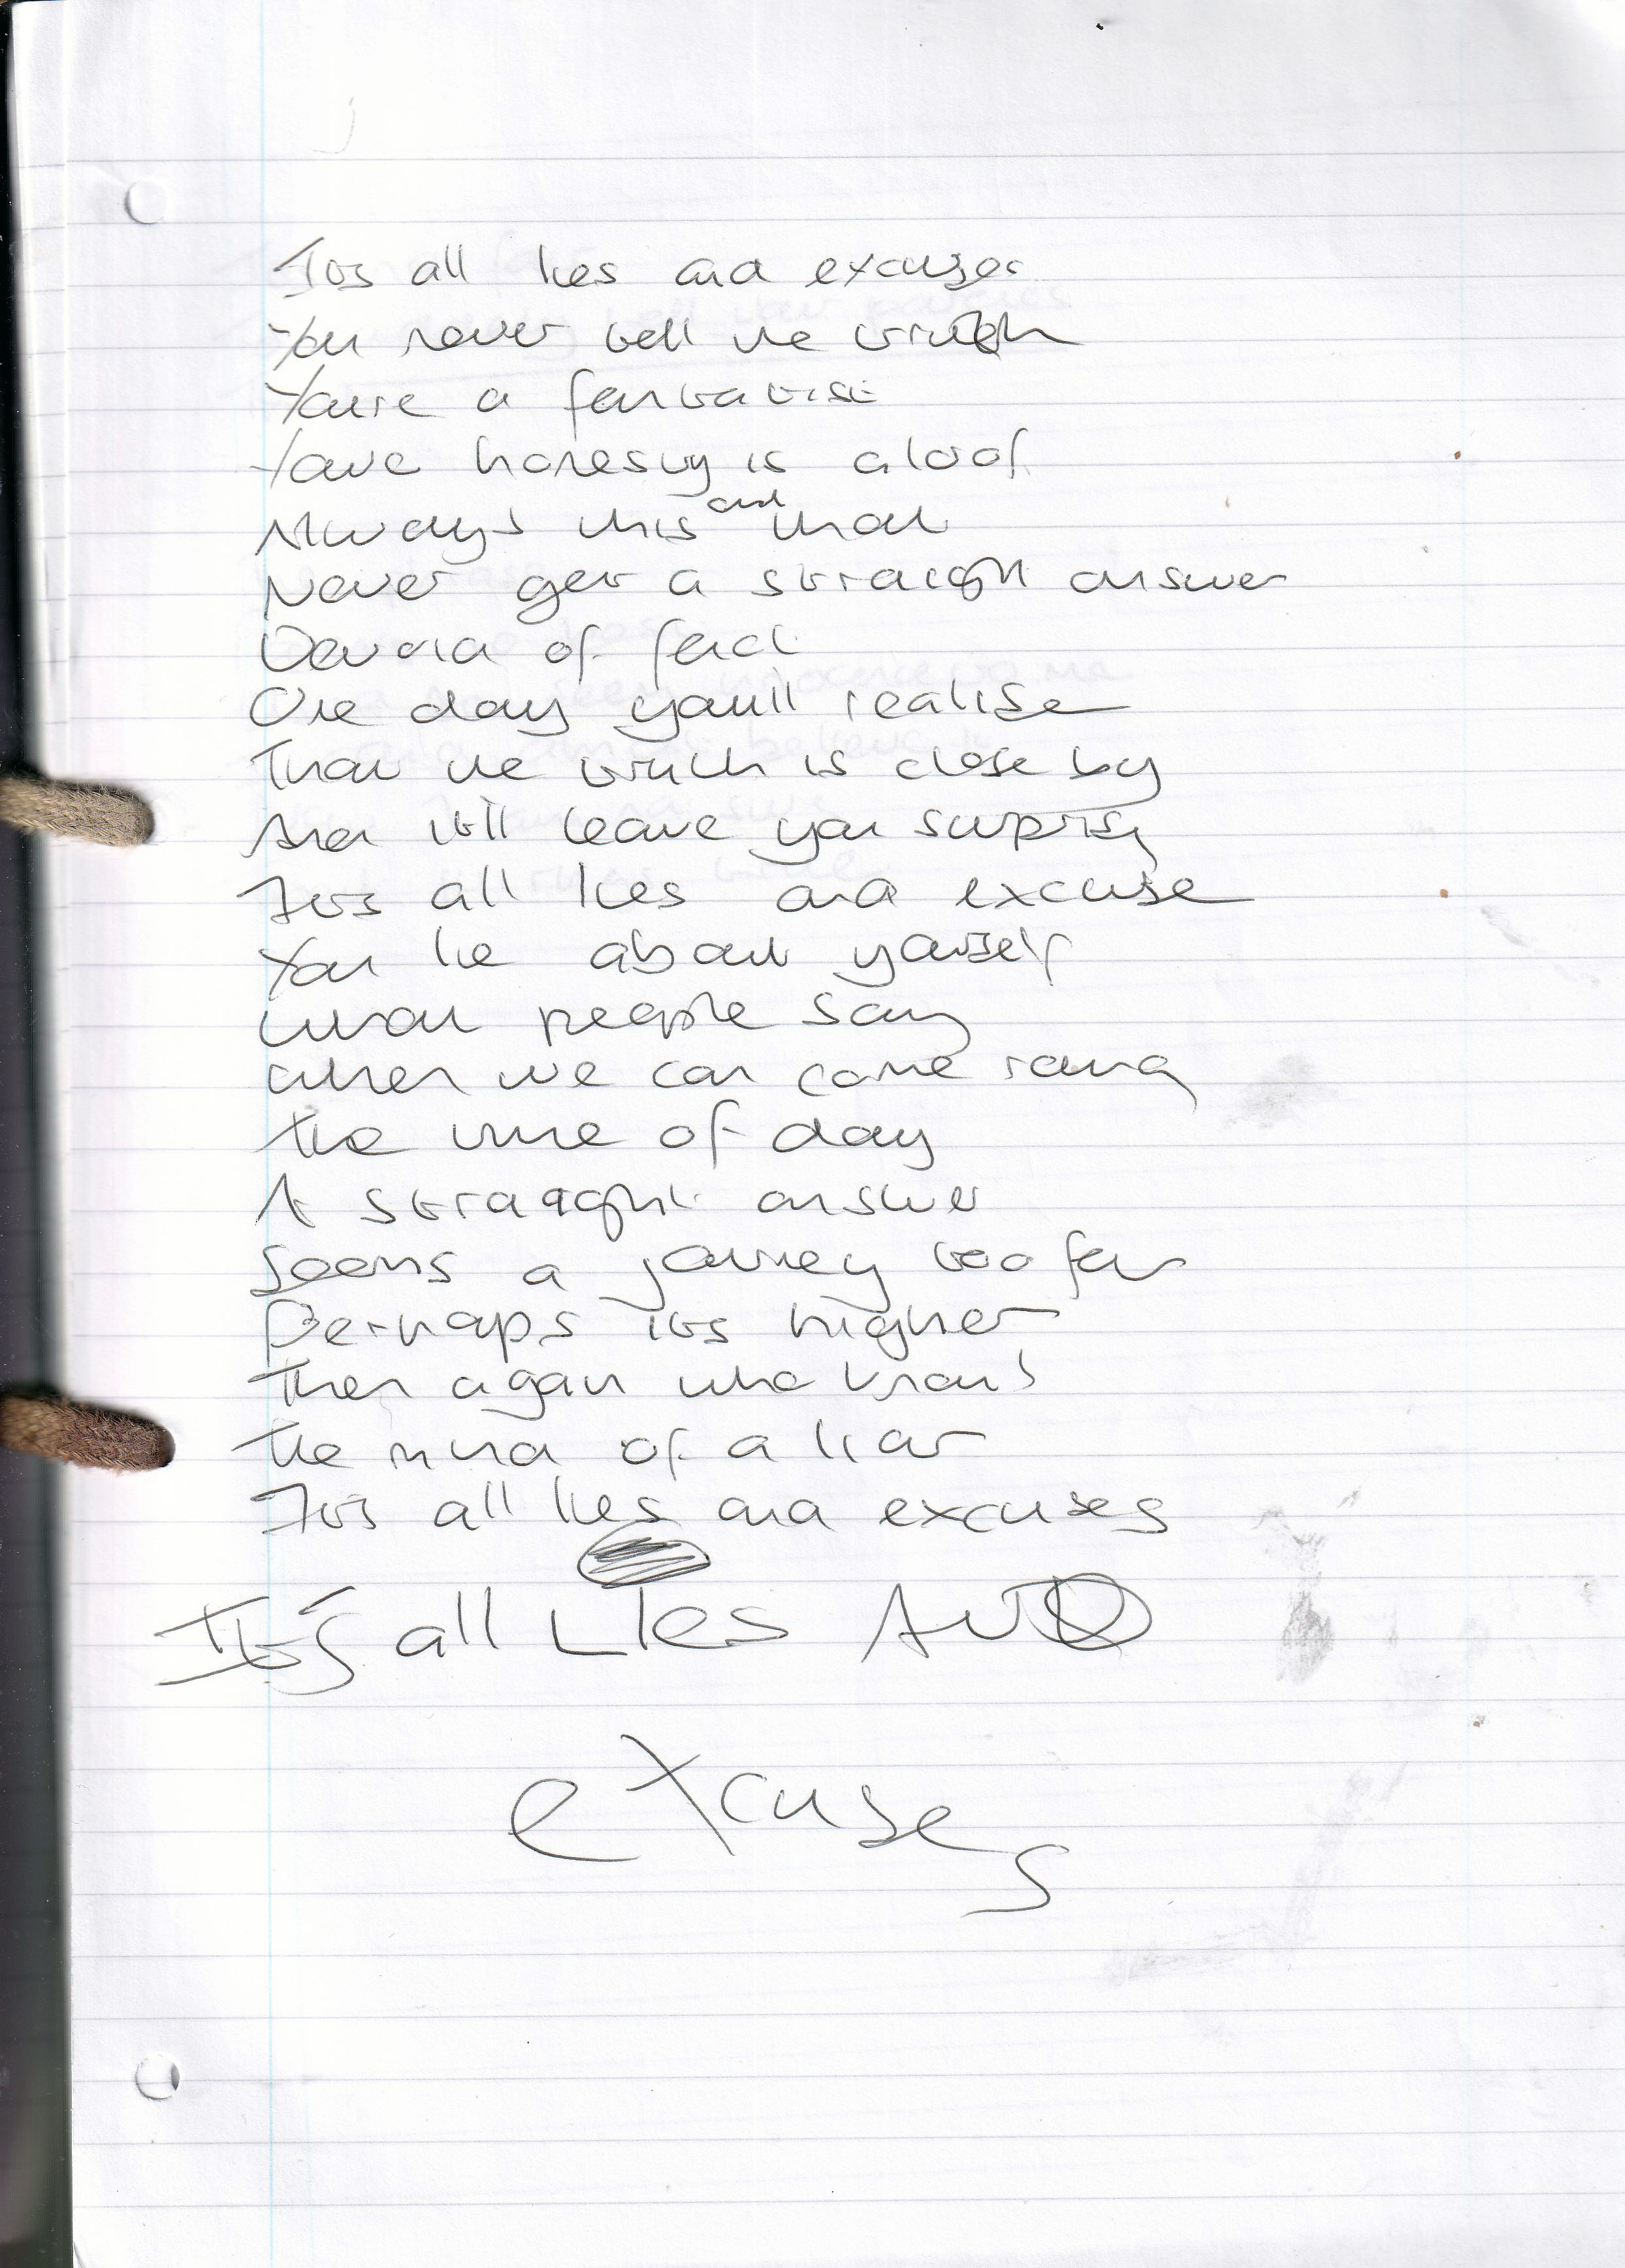 It's all lies and excuses
You never tell the truth
You're a fantatist
Your honesty is aloof
Always this and that
Never get a straight answer
Devoid of fact
One day you'll realise
That the truth is close by
And it'll leave you suprisy
It's all lies and excuse
You lie about yourself
What people say
When we can come round
The time of day
A straaght answer
Seems a journey too far
Perhaps its higher
Then again who knows
The mind of a liar
It's all lies and excuses
It's all Lies AND
excuses